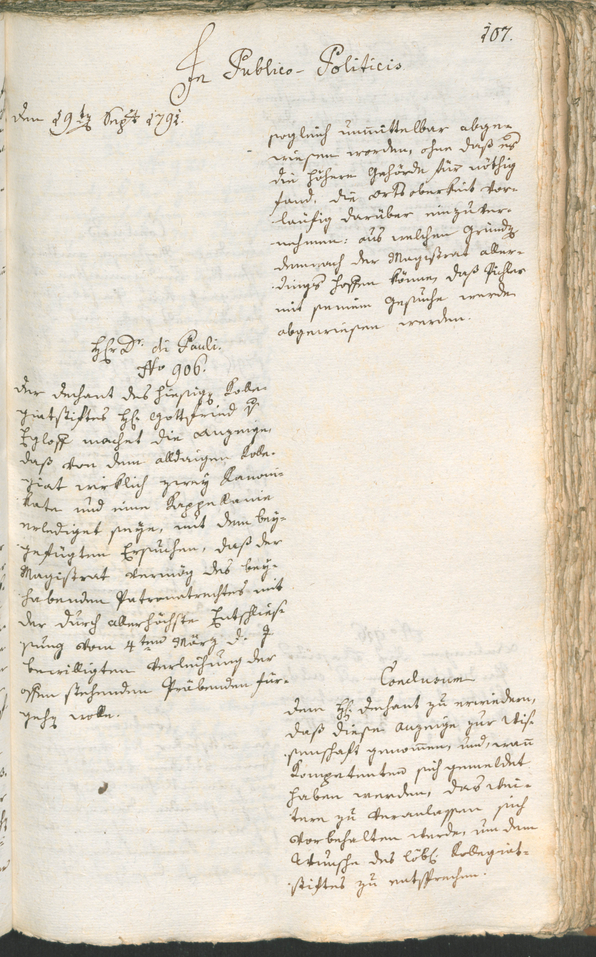 107.
In Publico-Politicis
den 19ten Sept. 1791.
sogleich unmittelbar abge-
wiesen worden, ohne daß es
die höhere Behörde für nöthig
fand, die Ortsoberkeit vor-
läufig darüber einzuver-
nehmen: aus welchen Gründen
demnach der Magistrat aller-
dings hoffen könne, daß Pichler
mit seinem Gesuche werde
abgewiesen werden.
Hr. Dr. di Pauli.
No 906.
Der Dechant des hiesigen Kolle-
giatstiftes Hr. Gottfried v
Egloff machet die Anzeige,
daß von dem alldaigen Kolle-
giat wirklich zwey Kanoni-
kate und eine Kappellanie
erlediget seye, mit dem bey-
gefügten Ersuchen, daß der
Magistrat vermög des bey-
habenden Patronatrechtes mit
der durch allerhöchste Entschlies-
sung vom 4ten März d. J
bewilligten Verleihung der
offen stehenden Präbenden für-
gehen wolle.
Conclusum
dem Hr. Dechant zu erwiedern,
daß diese Anzeige zur Wis-
senschaft genommen, und, wann
Kompetenten sich gemeldet
haben werden, das wei-
tere zu veranlassen sich
vorbehalten werde, um dem
Wunsche des löbl. Kollegiat-
stiftes zu entsprechen.